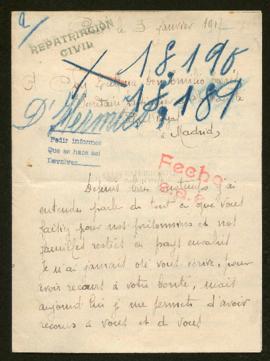 REPATRIACIÓN
CIVIL
le 3 janvier 191
18.190
18.189
D'Hermies
à Madrid
Pedir informes
Que se hace así
Devolver
Fecho
Depuis très longtemps j'ai
entendu parler de tout ce que vous
faites pour nos prisonniers et nos
familles restées en pays envahi
Je n'ai jamais osé vous écrire, pour
avoir recours à votre bonté, mais
aujourd'hui je me permets d'avoir
recours à vous et de vous